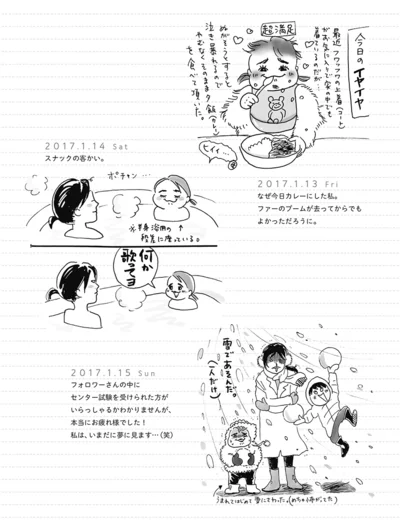 今日のイヤイヤ
最近フワッフワの上着(コート)
がお気に入りで家の中でも
着ているのだが…
超満足
ぬがそうとすると
泣き暴れるので
やむなくそのまま夕飯(カレー)
を食べて頂いた。
ヒイィ…
2017.1.13 Fri
なぜ今日カレーにした私。
ファーのブームが去ってからでも
よかっただろうに。
2017.1.14 Sat
スナックの客かい。
ポチャン…
※半身浴用の
段差に座っている。
何か
歌ってヨ
2017.1.15 Sun
フォロワーさんの中に
センター試験を受けられた方が
いらっしゃるかわかりませんが、
本当にお疲れ様でした!
私は、いまだに夢に見ます…(笑)
雪であそんだ。
(一人だけ)
うまれてはじめて雪にさわった。(めちゃ冷がてた)